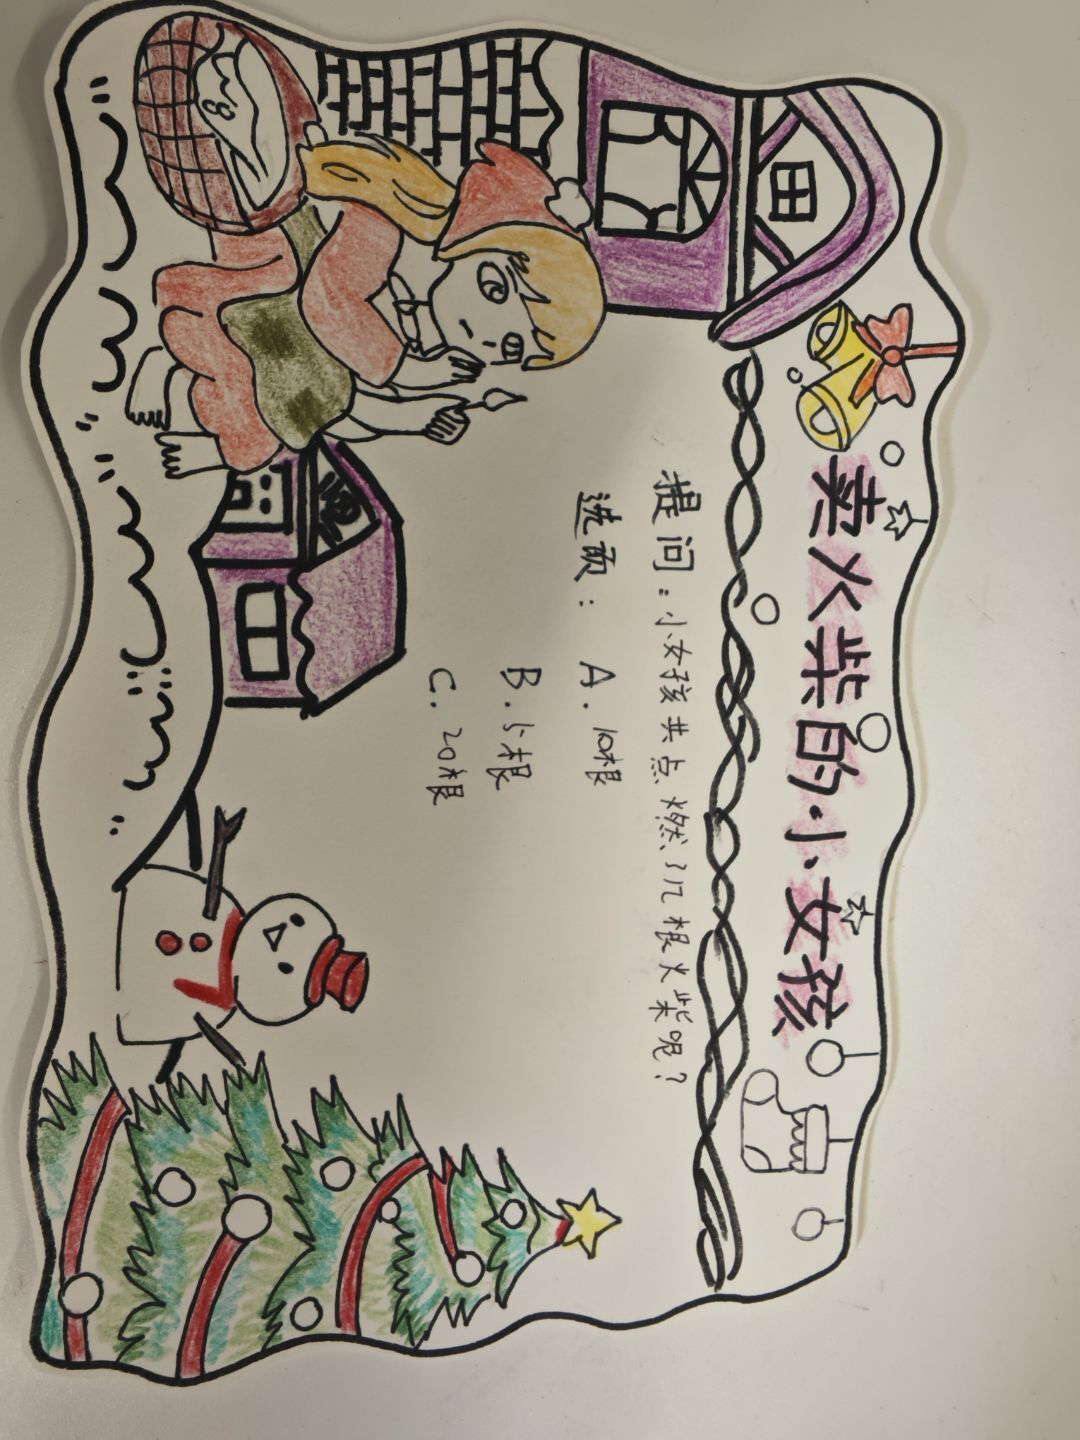 卖火柴的小女孩
提问:小女孩共点燃了几根火柴呢?
选项: A. 10根
B. 5根
C. 20根